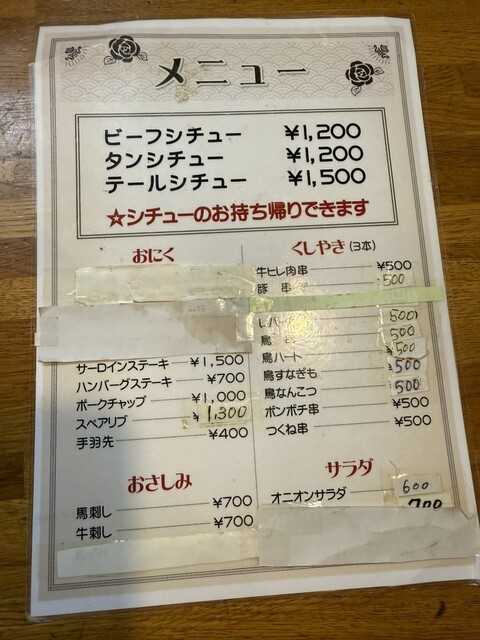 メニュー
ビーフシチュー ¥1,200
タンシチュー ¥1,200
テールシチュー ¥1,500
☆シチューのお持ち帰りできます
おにく
サーロインステーキ ¥1,500
ハンバーグステーキ ¥700
ポークチャップ ¥1,000
スペアリブ ¥1,300
手羽先 ¥400
おさしみ
馬刺し ¥700
牛刺し ¥700
くしやき(3本)
牛ヒレ肉串 ¥500
豚串 500
500
鳥 500
鳥ハート ¥500
鳥すなぎも ¥500
鳥なんこつ 500
ボンボチ串 ¥500
つくね串 ¥500
サラダ
オニオンサラダ 600
700